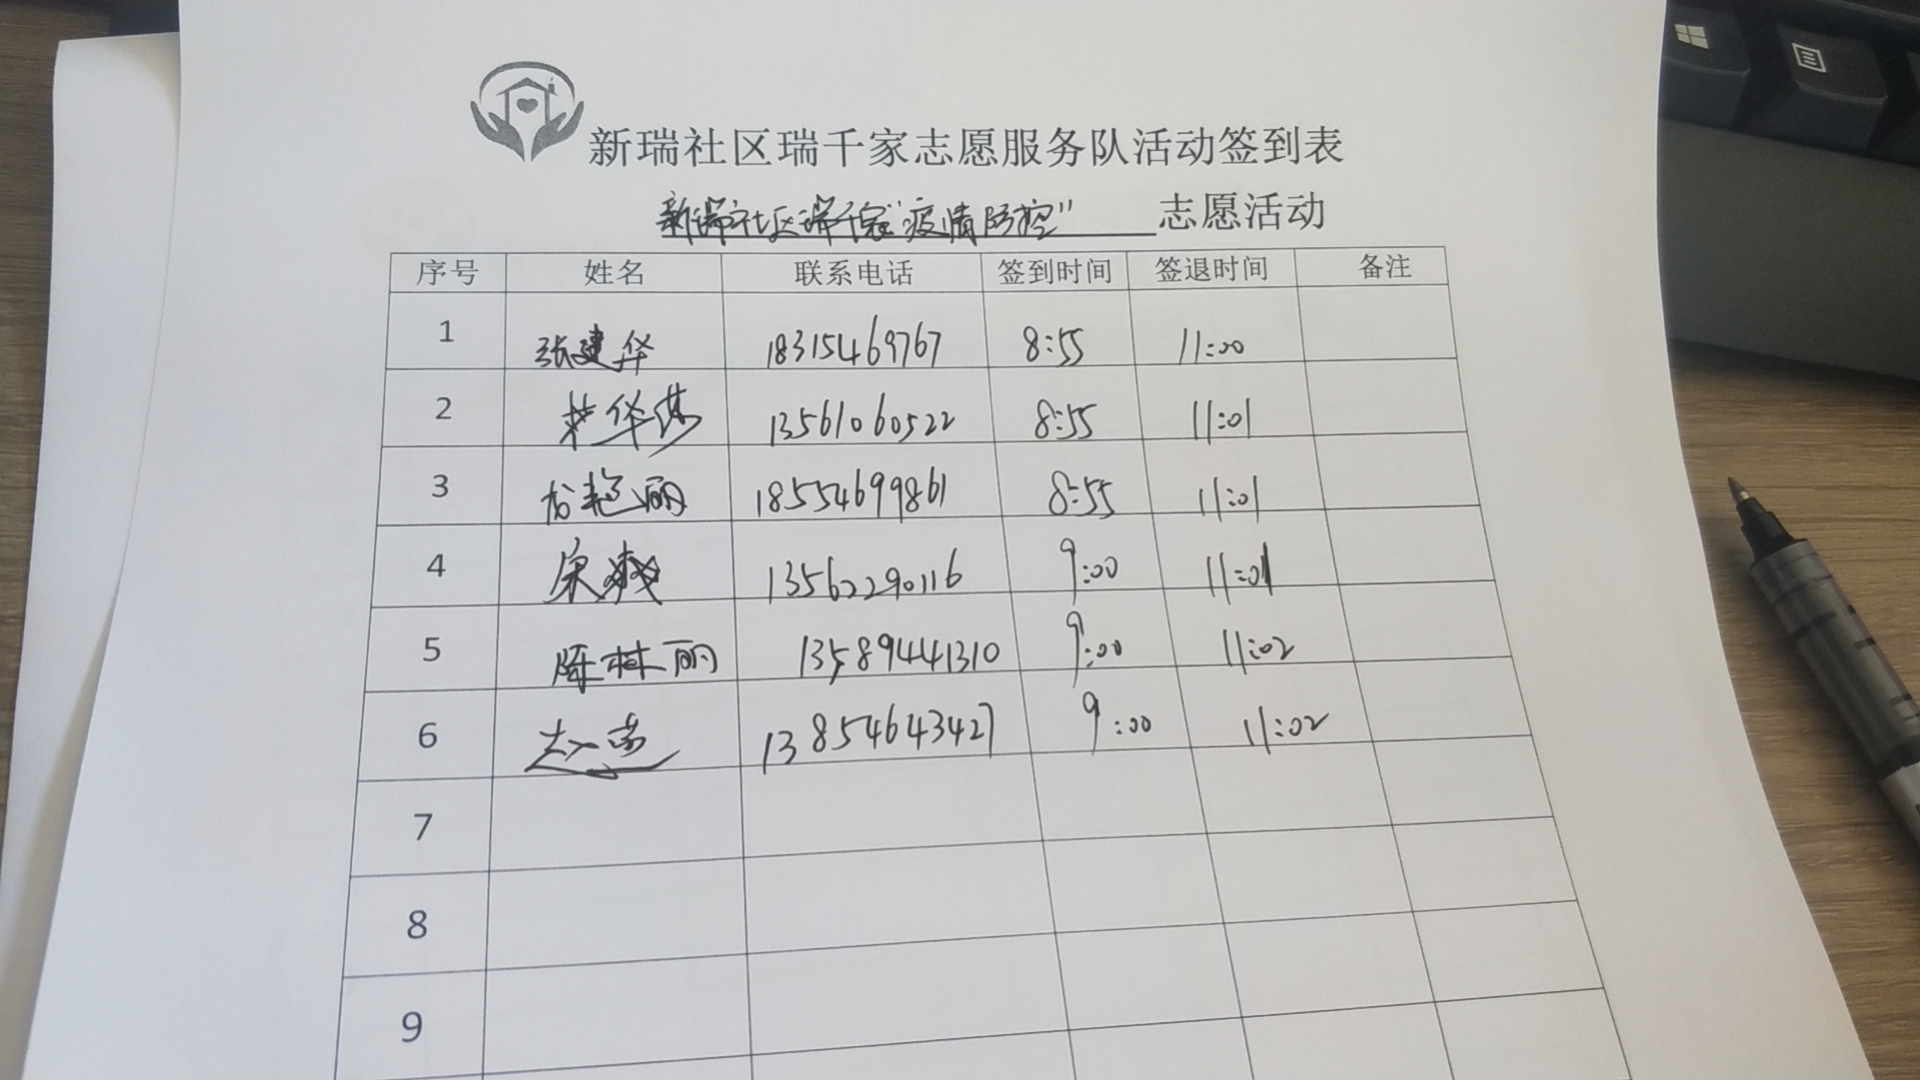 新瑞社区瑞千家志愿服务队活动签到表
新瑞社区瑞千家"疫情防控" 志愿活动
序号 姓名 联系电话 签到时间 签退时间 备注
1 张建华 18315469767 8:55 11:00
2 13561060522 8:55 11:01
3 艳丽 18554699861 8:55 11:01
4 宋 13562290116 9:00 11:01
5 陈林丽 13589441310 9:00 11:02
6 13854643427 9:00 11:02
7
8
9